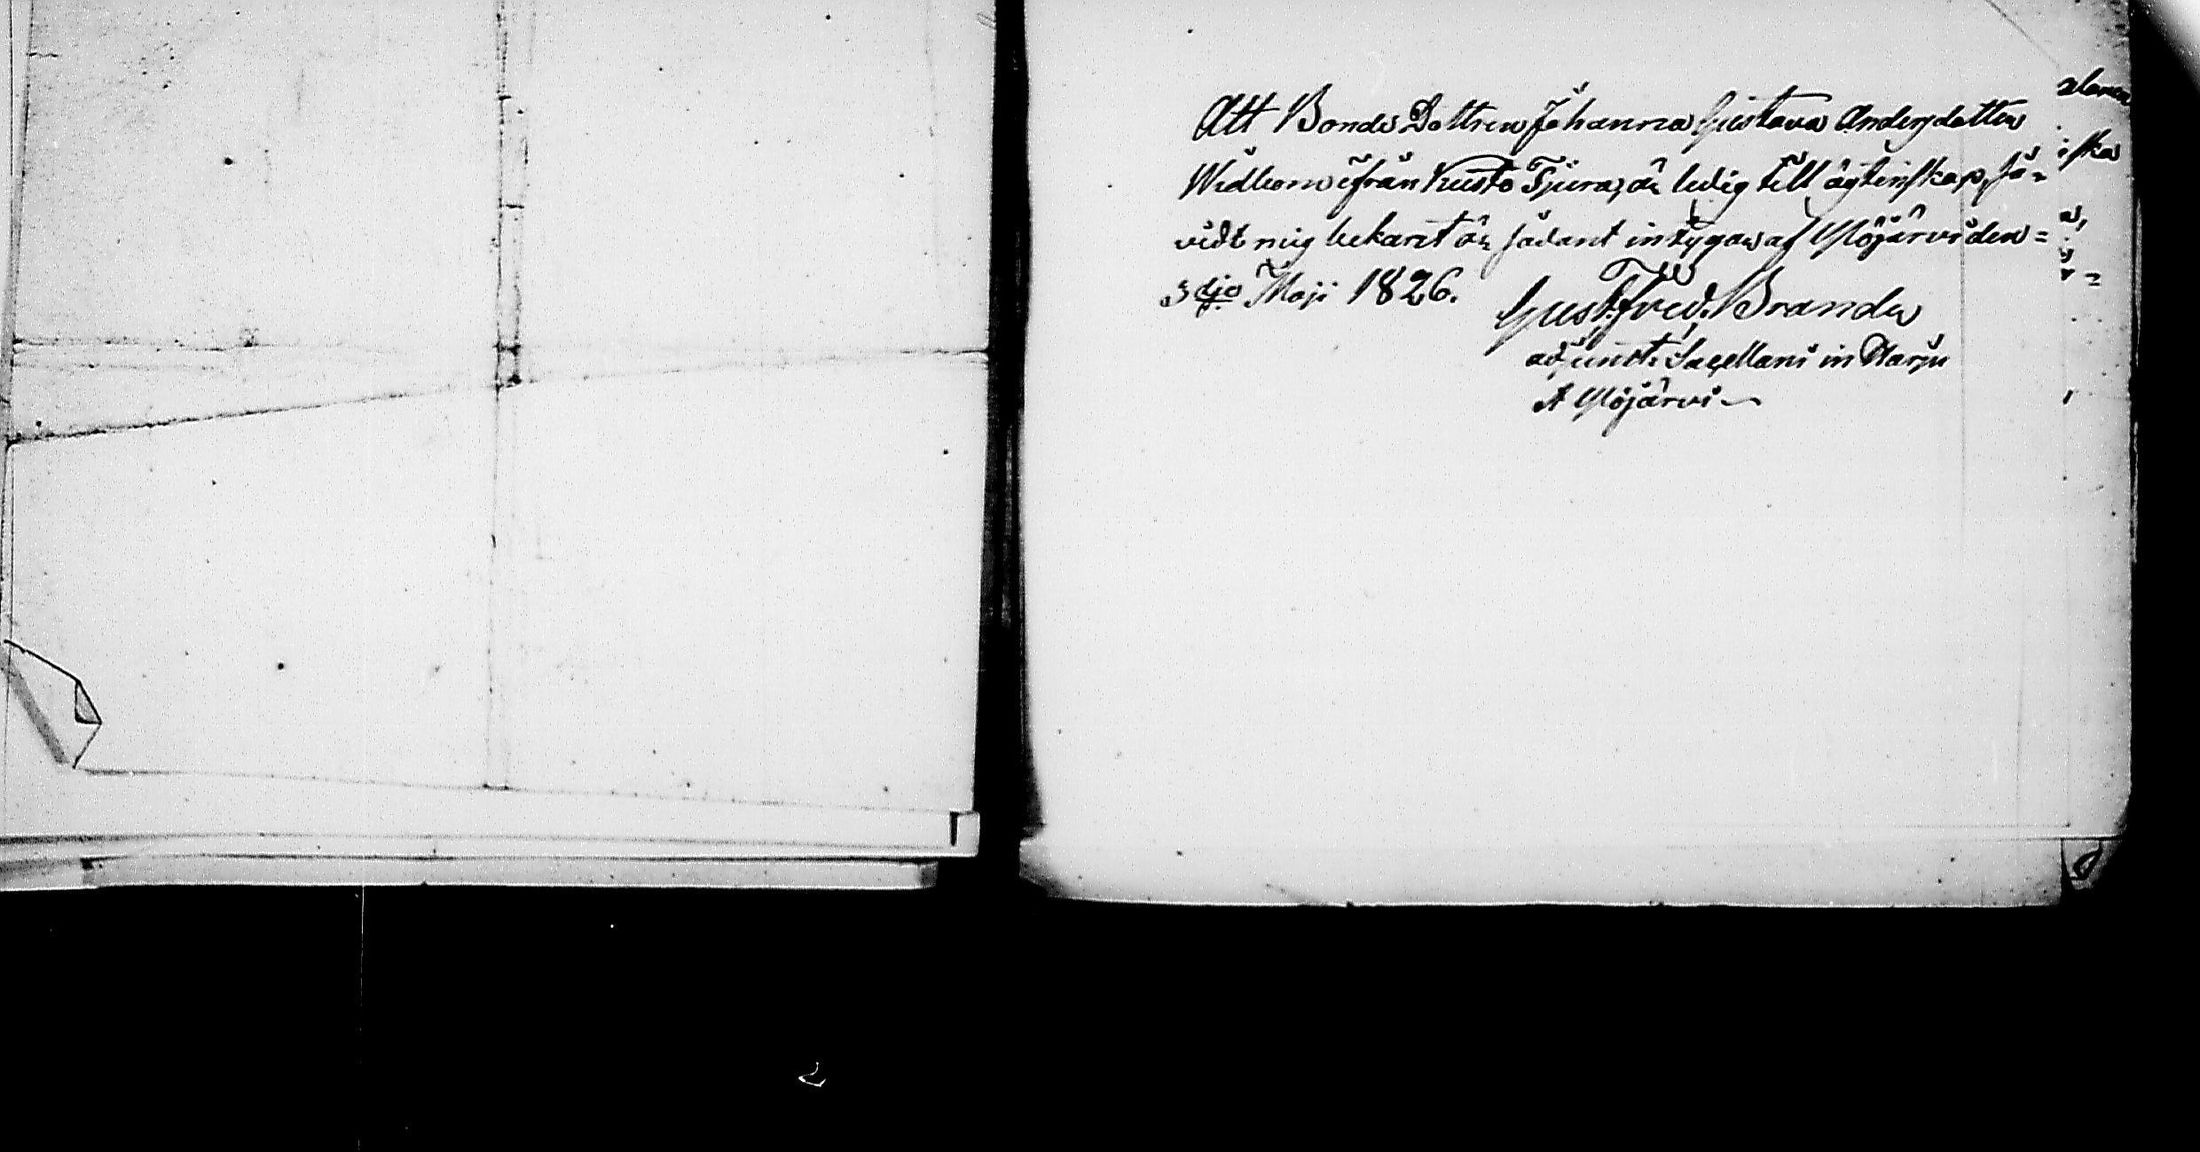 Att Bonde Dottren Johanna Gustava Andersdotter
ifrån Kusto Tjura, är ledig till ägtenskap, så-
vidt mig bekant är, sådant intygas af Ylöjärvi den =
3dje Maji 1826.
Gust. Fred. Brander
adjunct. Sacellani in Harju
et Ylöjärvi